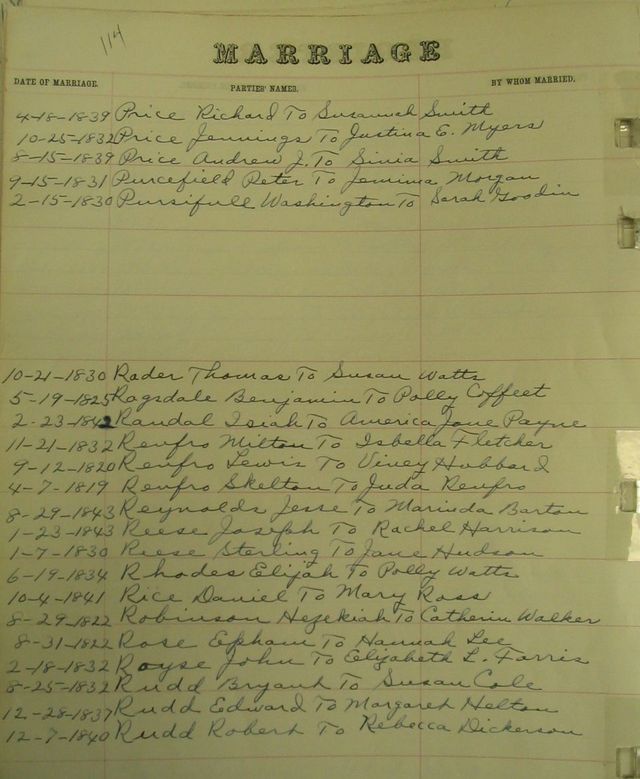 114
MARRIAGE
DATE OF MARRIAGE. PARTIES' NAMES. BY WHOM MARRIED.
4-18-1839 Price Richard To Susannah Smith
10-25-1832 Price Jennings To Justina E. Myers
8-15-1839 Price Andrew J. To Sinia Smith
9-15-1831 Purcefield Peter To Jemima Morgan
2-15-1830 Pursifull Washington To Sarah Goodin
10-21-1830 Rader Thomas To Susan Watts
5-19-1825 Ragsdale Benjamin To Polly Coffeet
2-23-1842 Randal Isiah To America Jane Payne
11-21-1832 Renfro Milton To Isbella Fletcher
9-12-1820 Renfro Lewis To Viney Hubbard
4-7-1819 Renfro Skelton To Juda Renfro
8-29-1843 Reynolds Jesse To Marinda Barton
1-23-1843 Reese Joseph To Rachel Harrison
1-7-1830 Reese Sterling To Jane Hudson
6-19-1834 Rhodes Elijah To Polly Watts
10-4-1841 Rice Daniel To Mary Ross
8-29-1822 Robinson Hezekiah To Catherin Walker
8-31-1822 Rose Epham To Hannah Lee
2-18-1832 Royse John To Elizabeth L. Farris
8-25-1832 Rudd Bryant To Susan Cole
12-28-1837 Rudd Edward To Margaret Helton
12-7-1840 Rudd Robert To Rebecca Dickerson